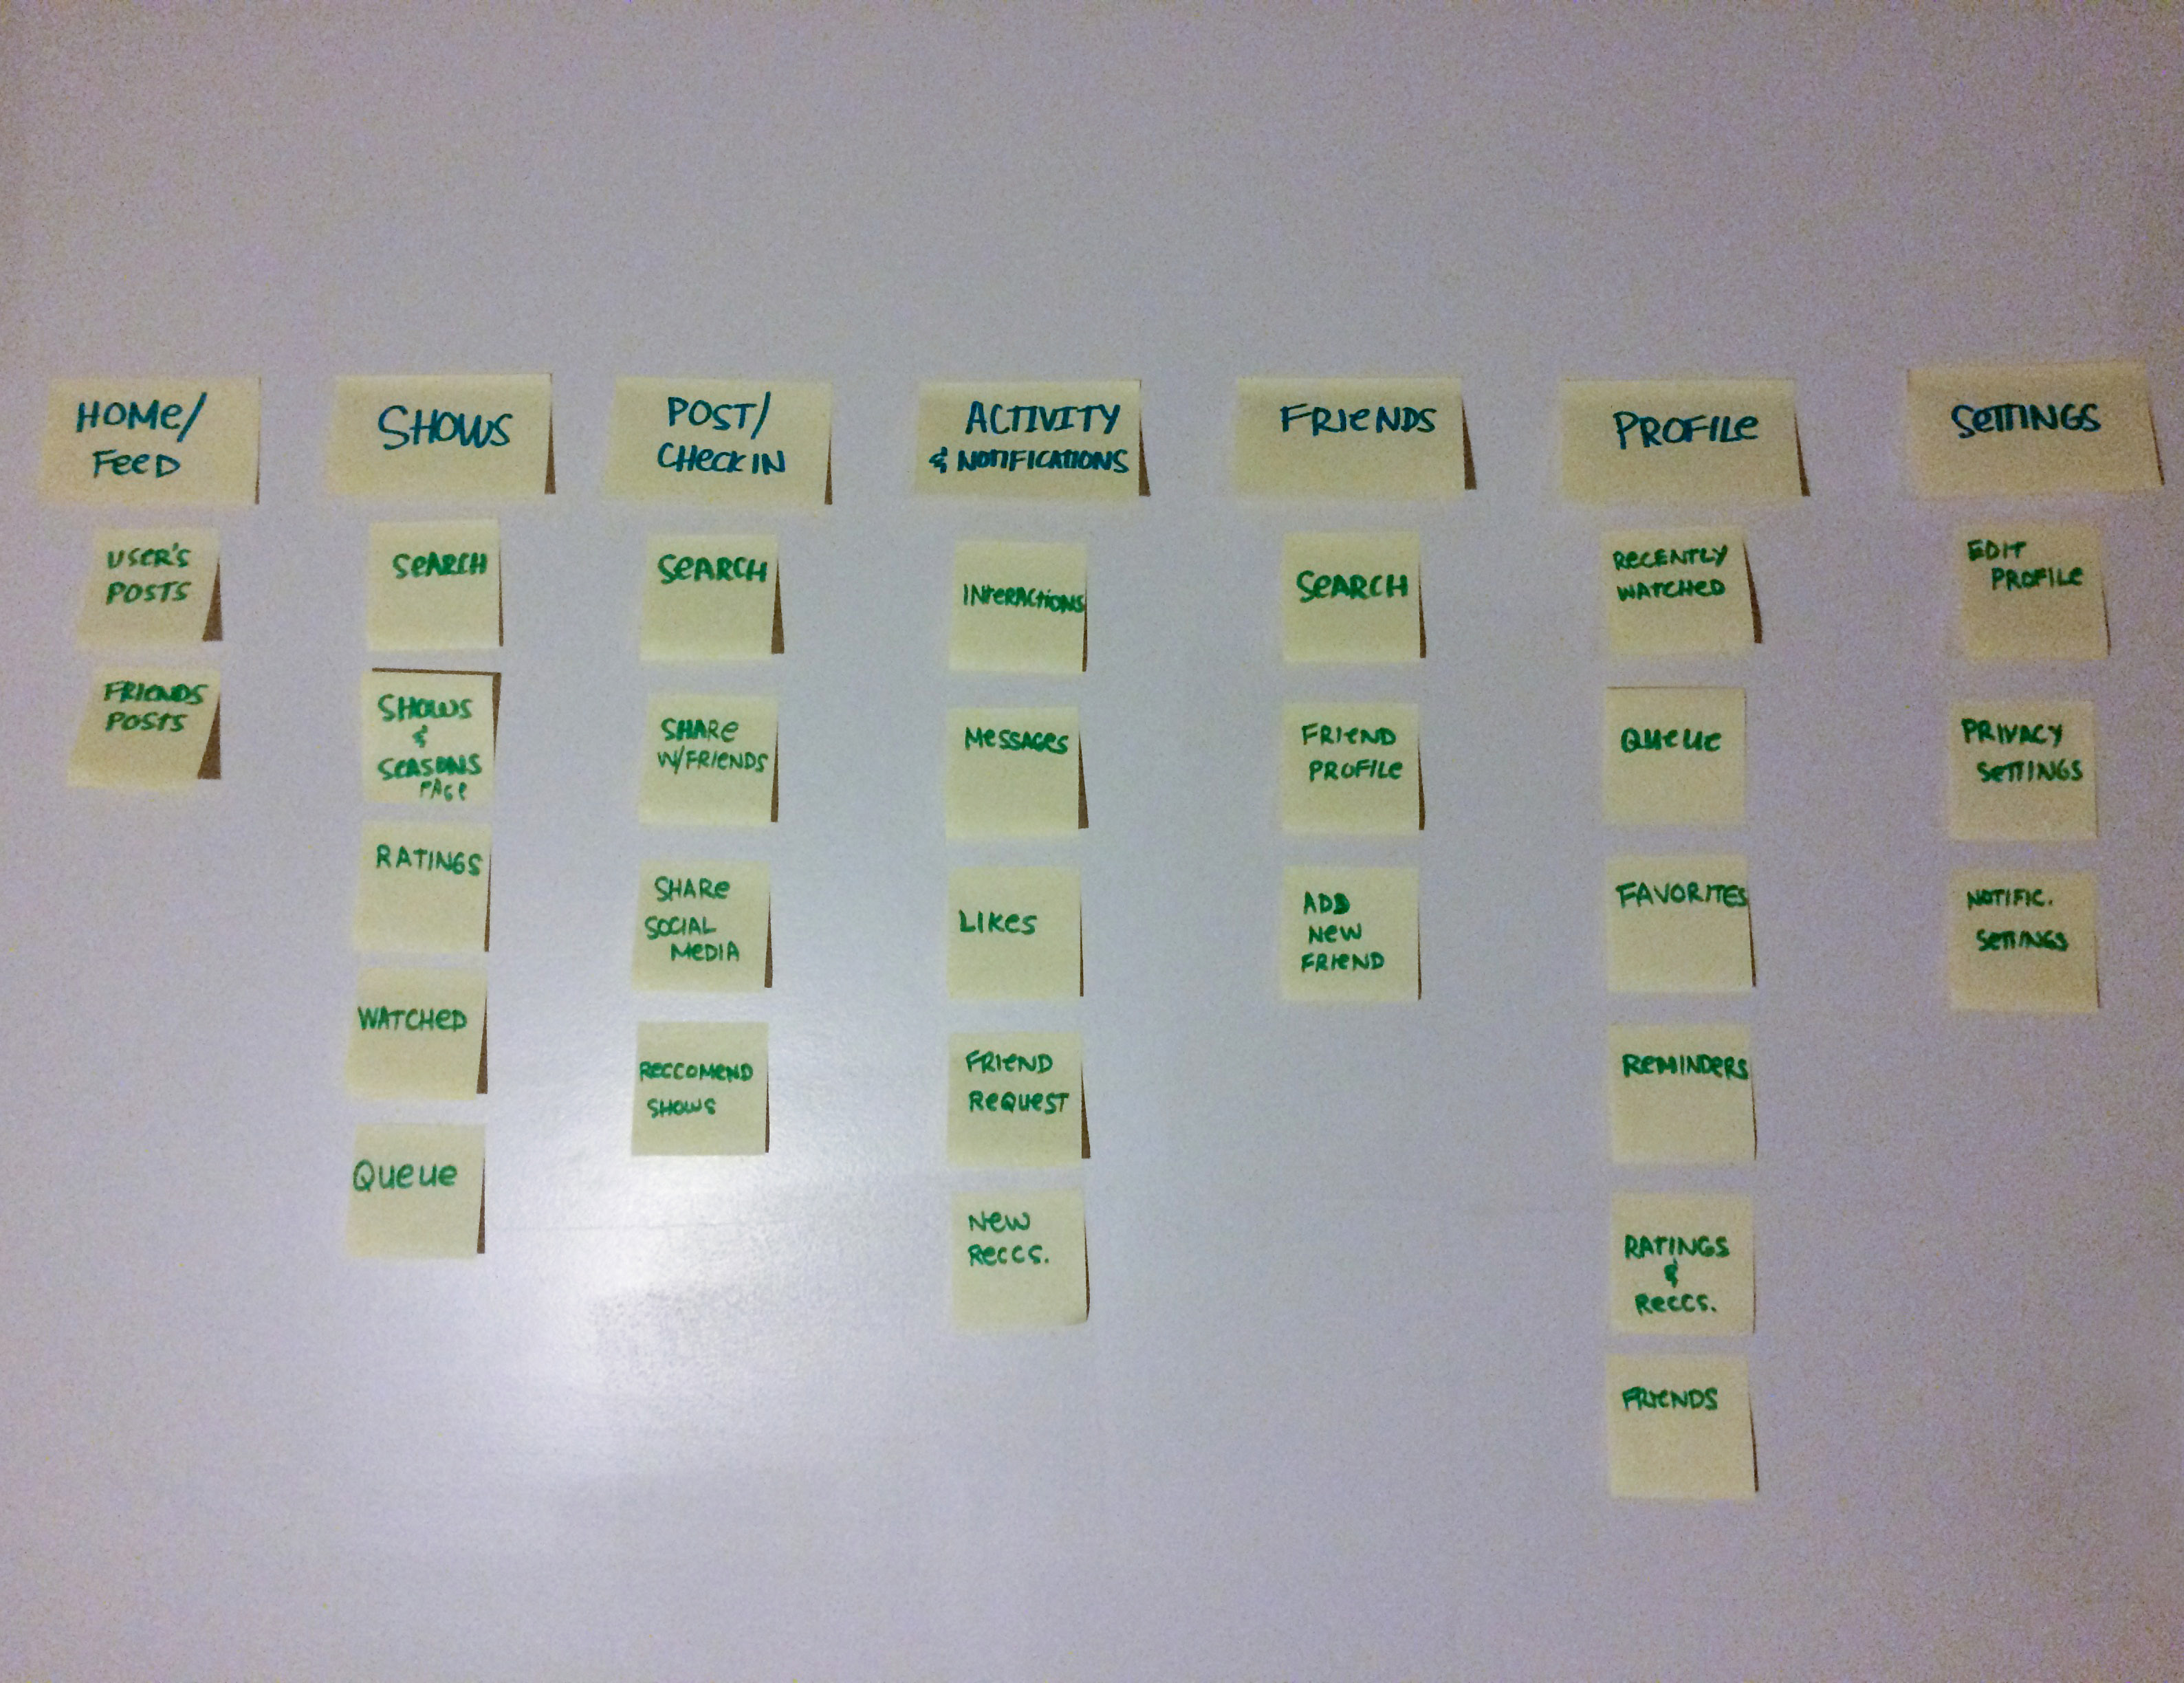 HOME/
FEED
USER'S
POSTS
FRIENDS
POSTS
SHOWS
SEARCH
SHOWS
&
SEASONS
PAGE
RATINGS
WATCHED
QUEUE
POST/
CHECK IN
SEARCH
SHARE
W/FRIENDS
SHARE
SOCIAL
MEDIA
RECCOMEND
SHOWS
ACTIVITY
& NOTIFICATIONS
INTERACTIONS
MESSAGES
LIKES
FRIEND
REQUEST
NEW
RECCS.
FRIENDS
SEARCH
FRIEND
PROFILE
ADD
NEW
FRIEND
PROFILE
RECENTLY
WATCHED
QUEUE
FAVORITES
REMINDERS
RATINGS
&
RECCS.
FRIENDS
SETTINGS
EDIT
PROFILE
PRIVACY
SETTINGS
NOTIFIC.
SETTINGS